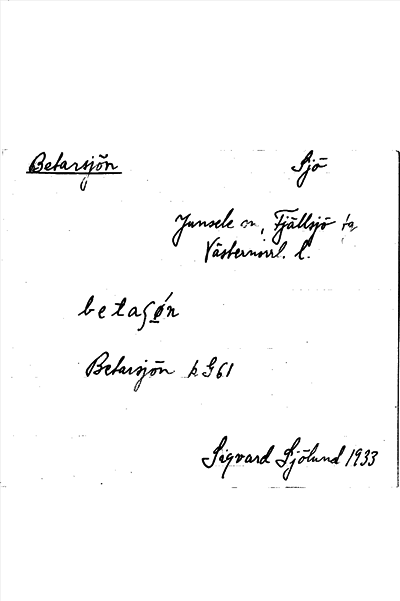 Betarsjön Sjö
Junsele sn, Fjällsjö ta
Västernorrl. l.
betaʂǿn
Betarsjön k G61
Sigvard Sjölund 1933